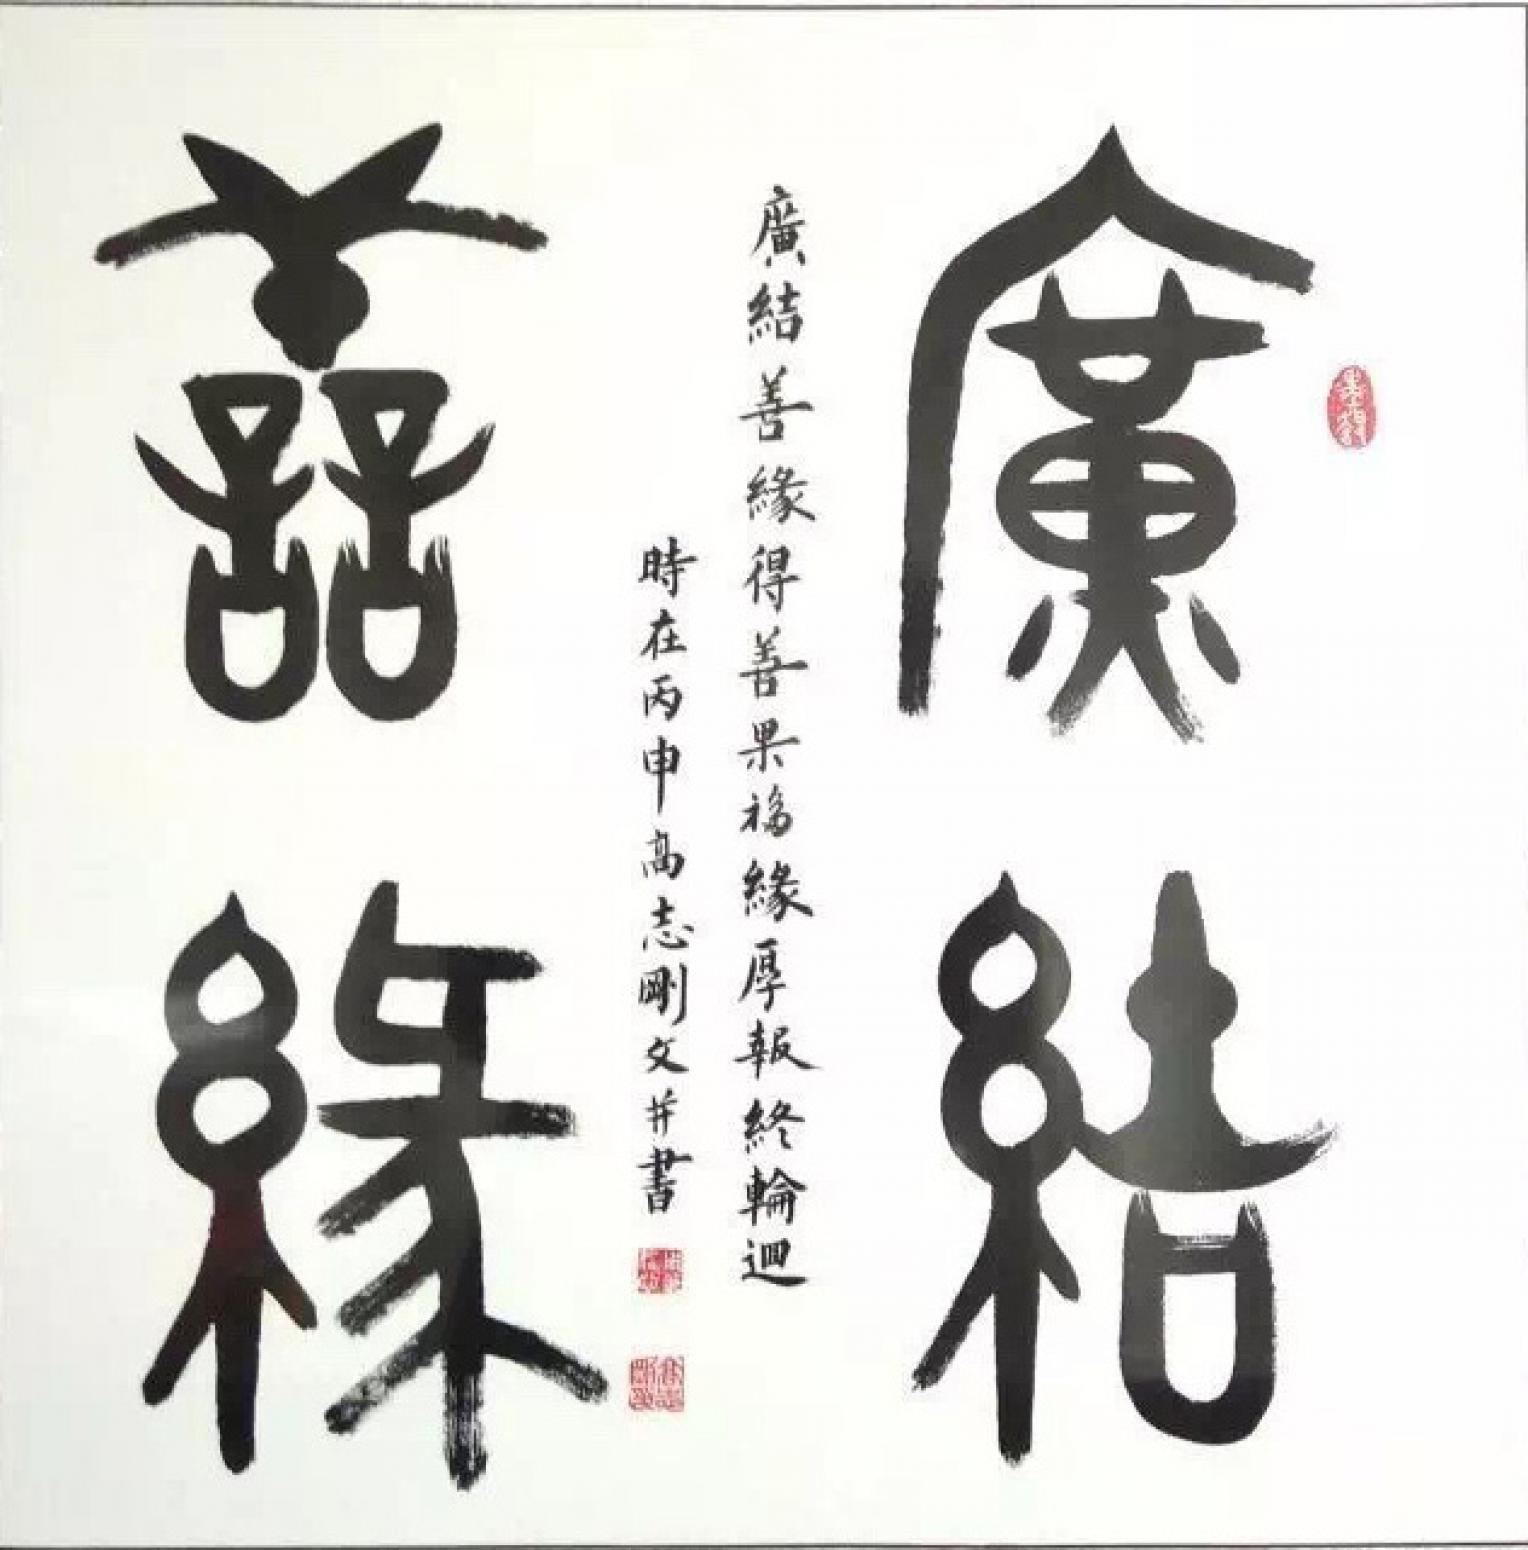 廣結
善緣
廣結善緣得善果福緣厚報終輪迴
時在丙申高志剛文并書